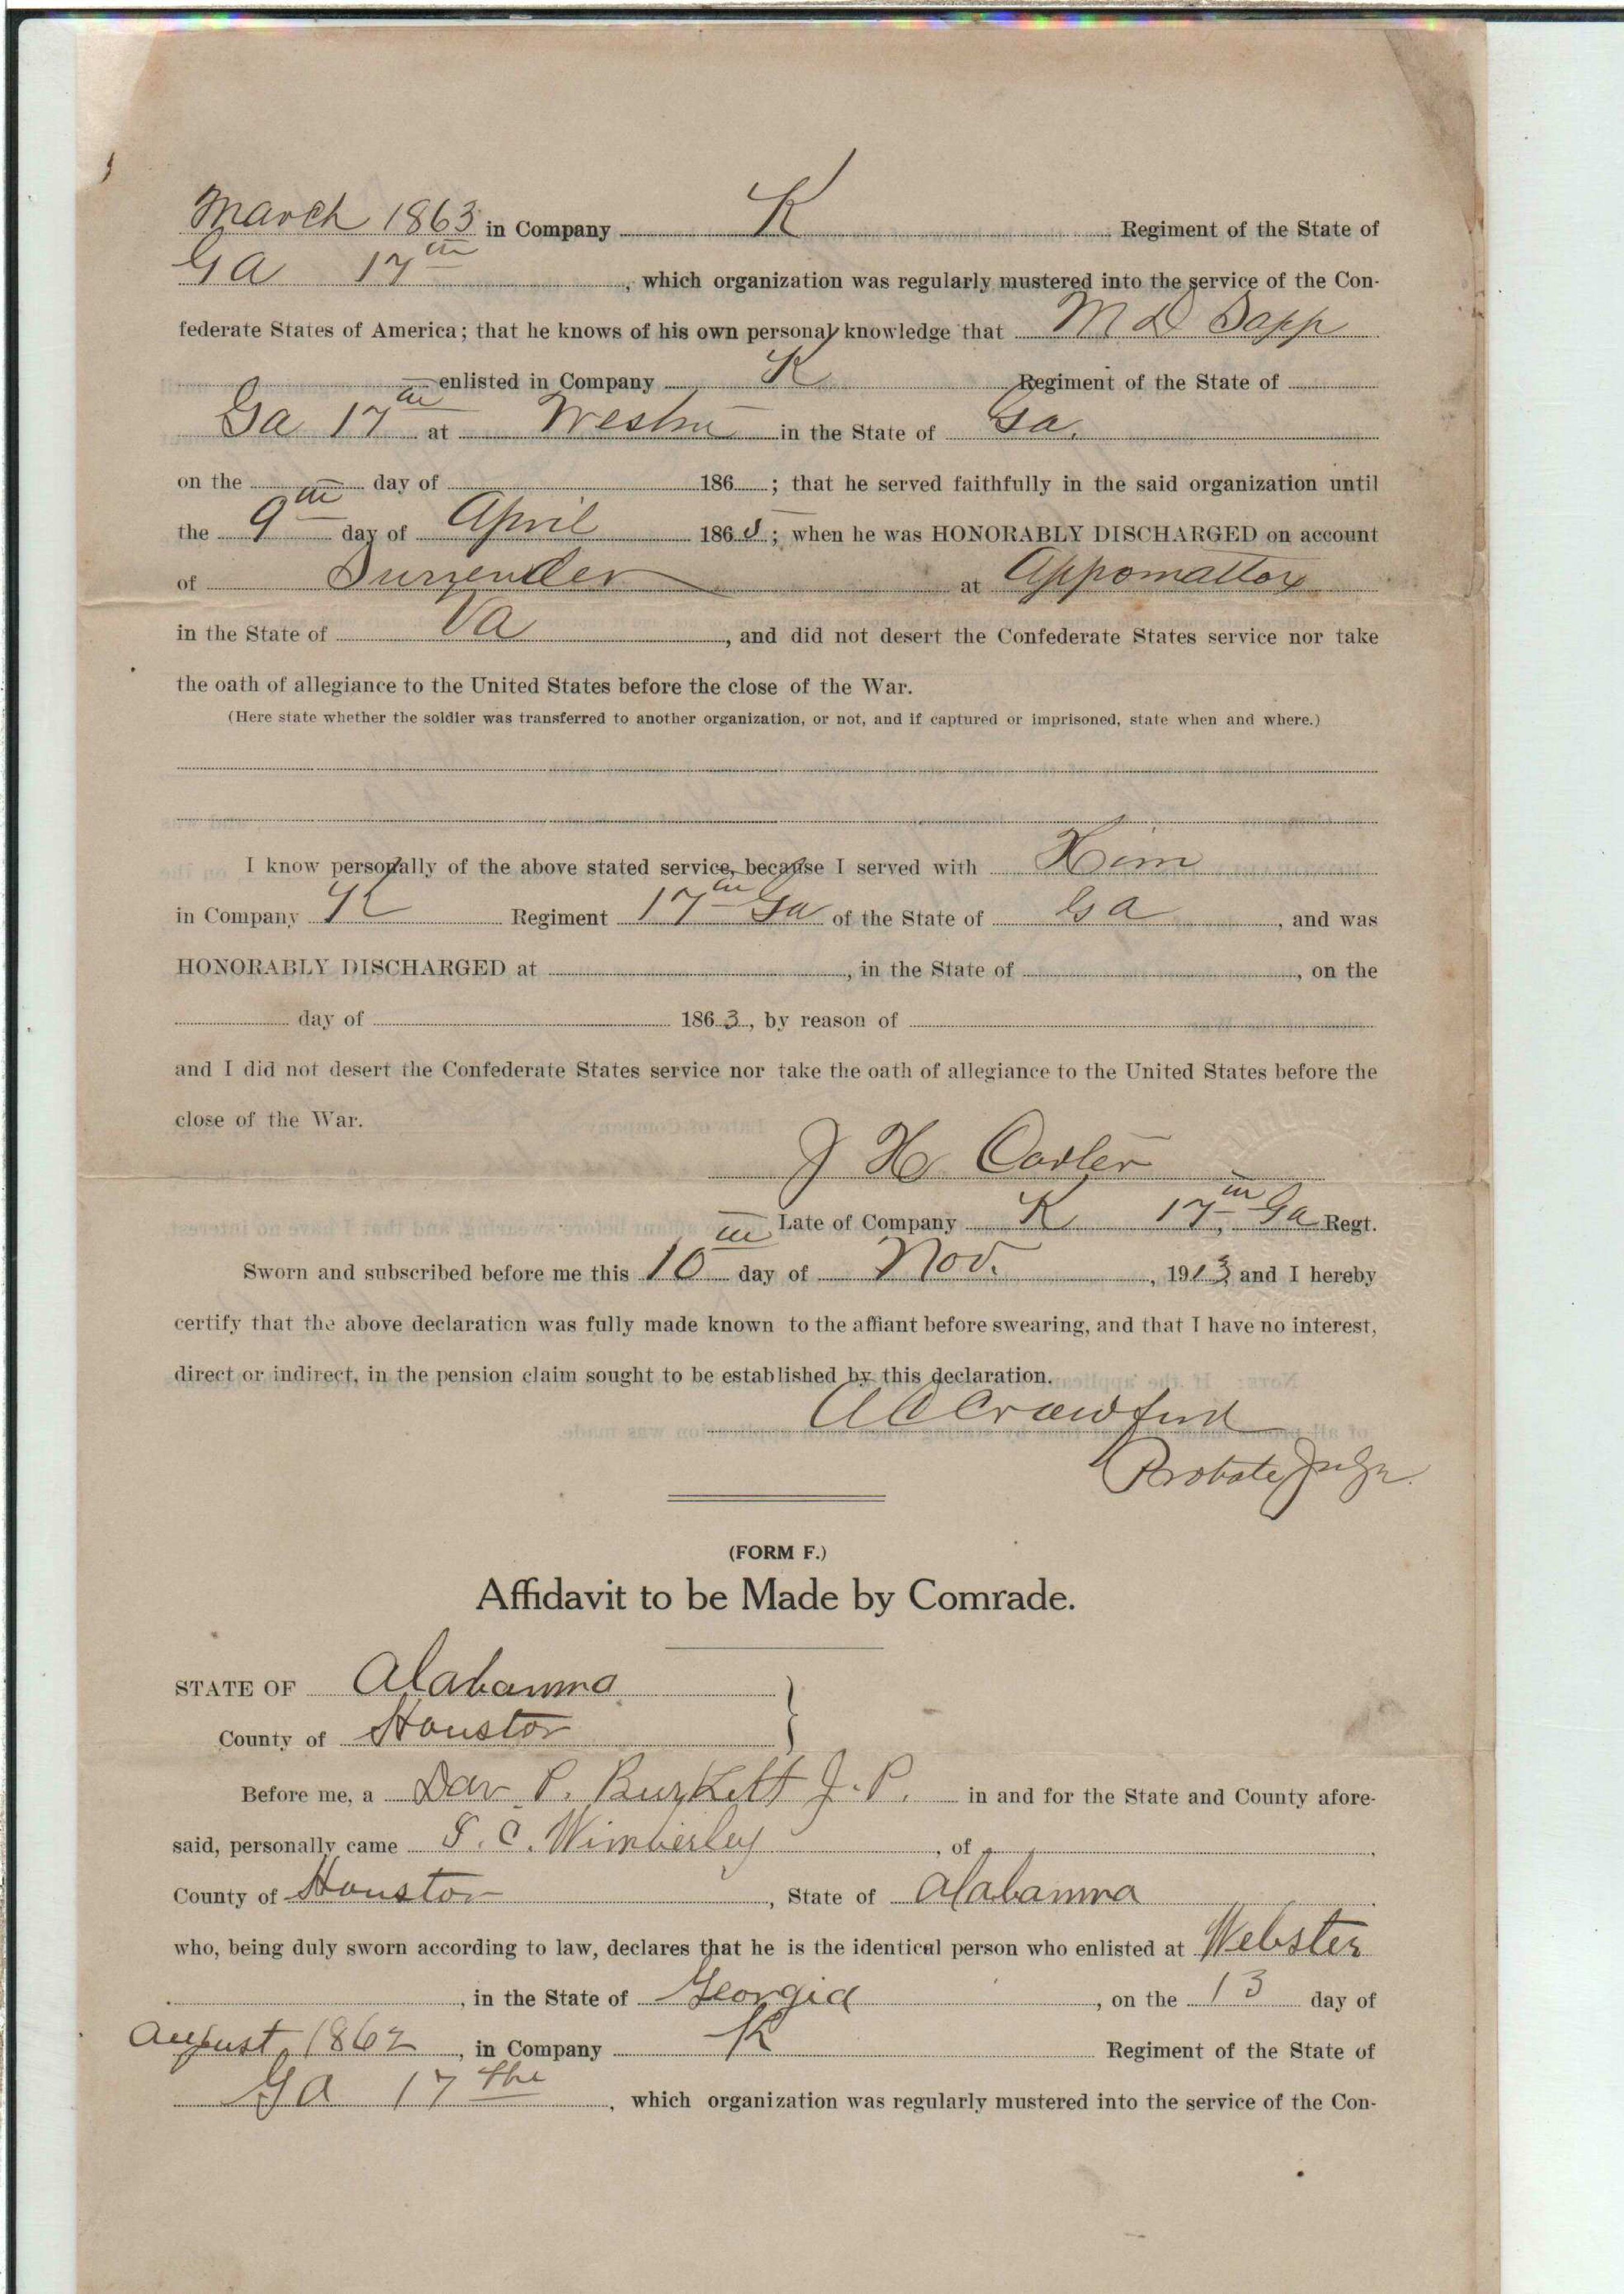 March 1863 in Company K Regiment of the State of
Ga 17th, which organization was regularly mustered into the service of the Con-
federate States of America; that he knows of his own personal knowledge that M D Sapp
enlisted in Company K Regiment of the State of
Ga 17th at in the State of Ga.
on the day of 186 ; that he served faithfully in the said organization until
the 9th day of April 1865; when he was HONORABLY DISCHARGED on account
of Surrender at Appomattox
in the State of Va, and did not desert the Confederate States service nor take
the oath of allegiance to the United States before the close of the War.
(Here state whether the soldier was transferred to another organization, or not, and if captured or imprisoned, state when and where.)
I know personally of the above stated service, because I served with Him
in Company K Regiment 17th Ga of the State of Ga, and was
HONORABLY DISCHARGED at , in the State of , on the
day of 1863, by reason of
and I did not desert the Confederate States service nor take the oath of allegiance to the United States before the
close of the War.
J H Carter
Late of Company K 17th Ga Regt.
Sworn and subscribed before me this 10th day of Nov. , 1913 and I hereby
certify that the above declaration was fully made known to the affiant before swearing, and that I have no interest,
direct or indirect, in the pension claim sought to be established by this declaration.
A C Crawford
Probate Judge
(FORM F.)
Affidavit to be Made by Comrade.
STATE OF Alabama
County of Houston
Before me, a Dav P. Burkett J. P. in and for the State and County afore-
said, personally came S. C. Wimberley , of
County of Houston , State of Alabama
who, being duly sworn according to law, declares that he is the identical person who enlisted at Webster
, in the State of Georgia , on the 13 day of
August, 1862 , in Company K Regiment of the State of
Ga 17 the , which organization was regularly mustered into the service of the Con-